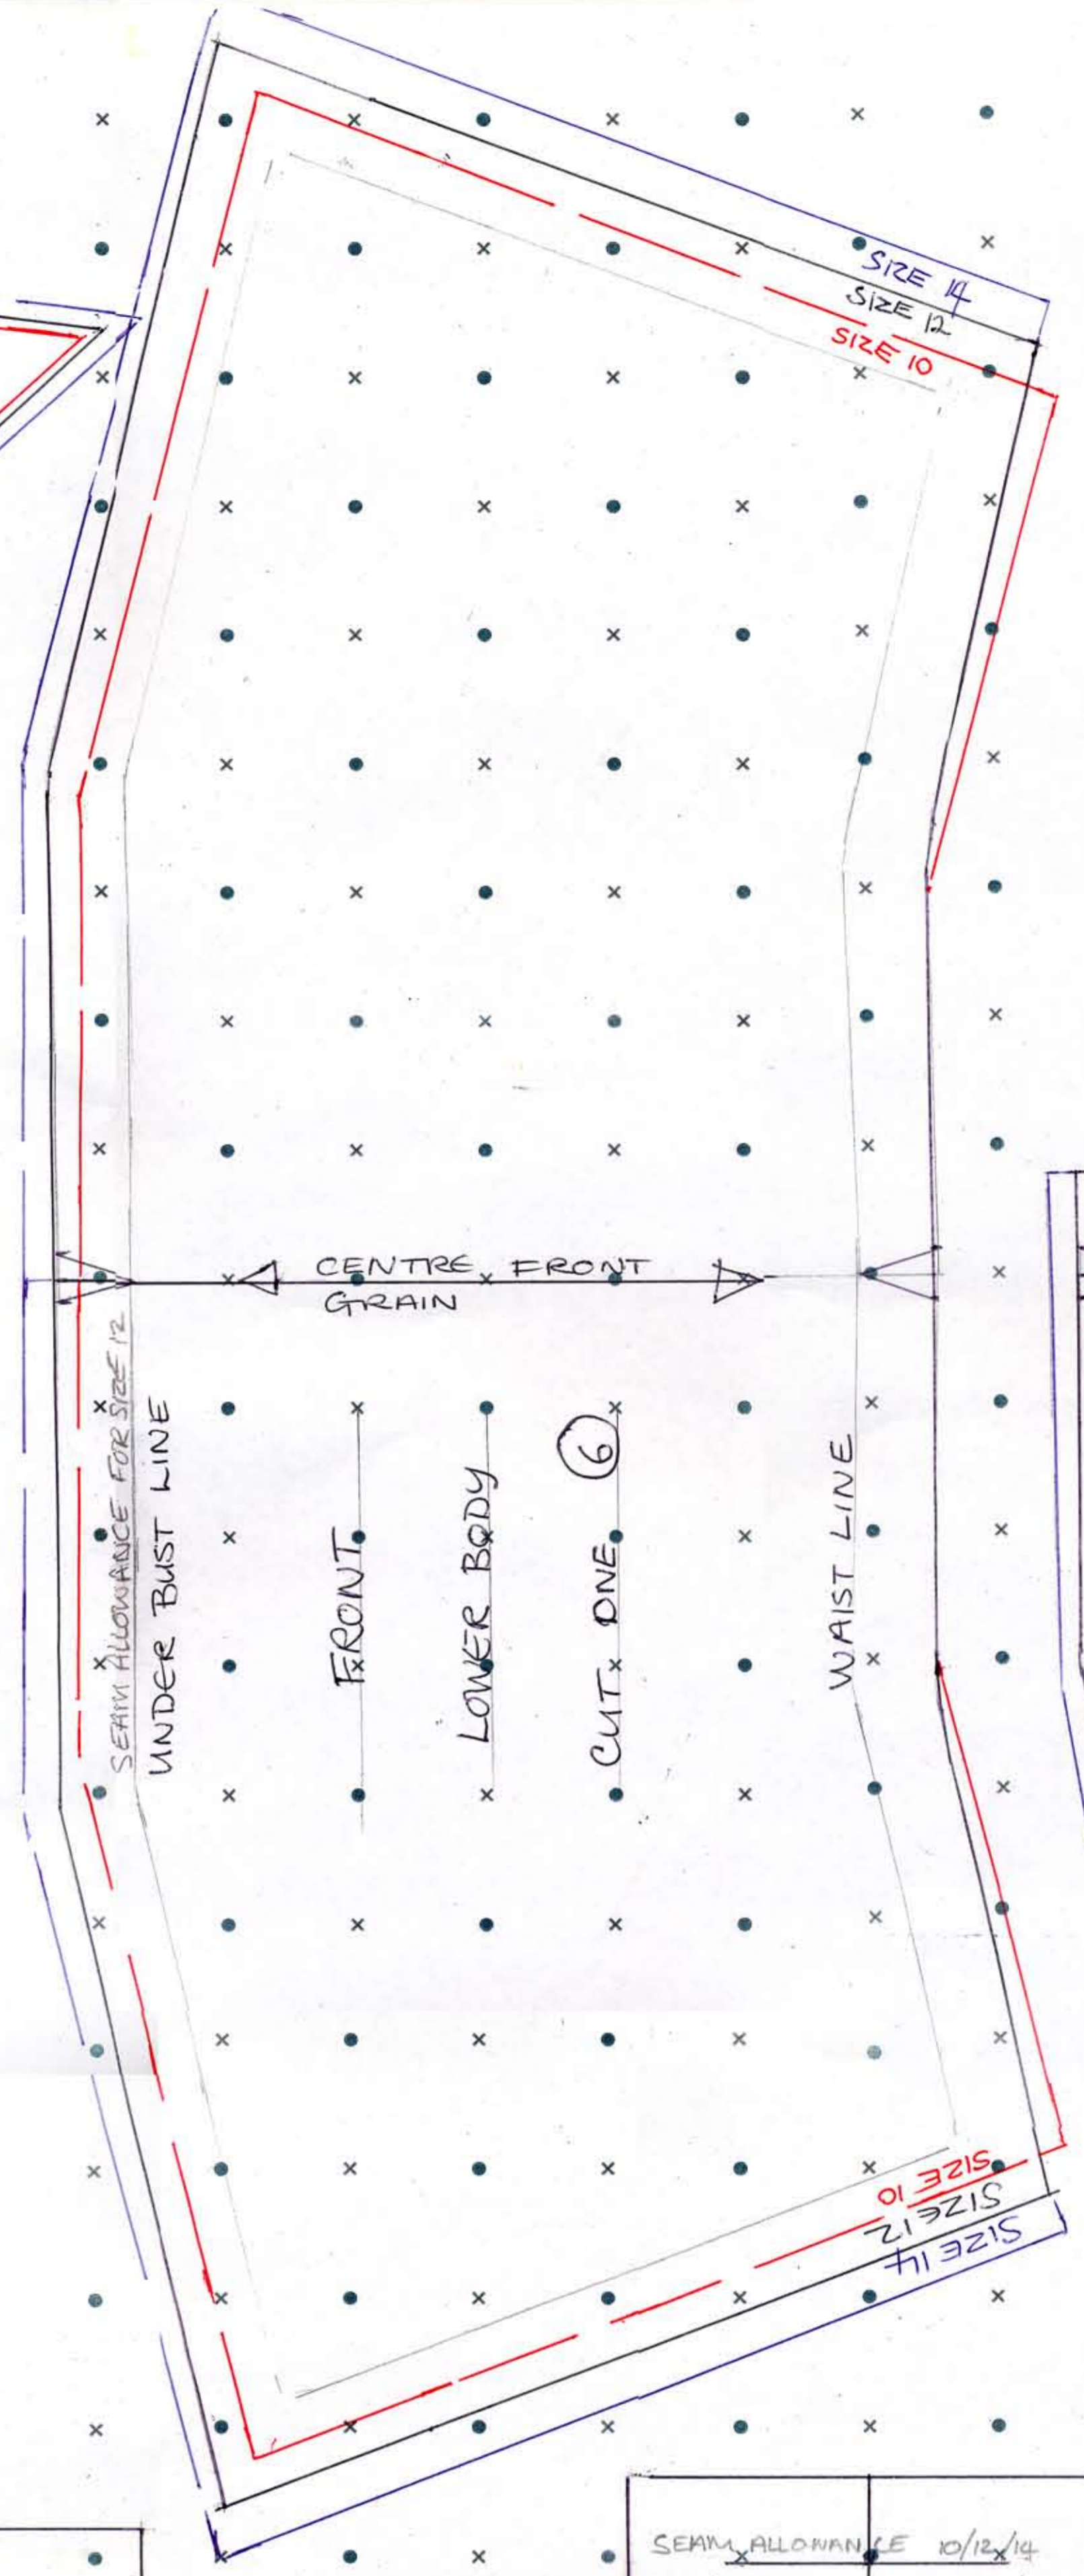 SIZE 14
SIZE 12
SIZE 10
CENTRE FRONT
GRAIN
SEAM ALLOWANCE FOR SIZE 12
UNDER BUST LINE
FRONT
LOWER BODY
CUT ONE 6
WAIST LINE
SIZE 10
SIZE 12
SIZE 14
SEAM ALLOWANCE 10/12/14